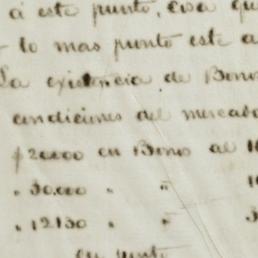 á este punto, esa qu
lo mas punto este a
La existencia de Bonos
condiciones del mercado
$20.000 en Bonos al 10
" 30.000 " " 10
" 12150 " " 3
en junto